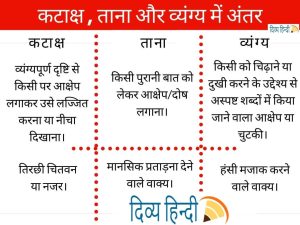 कटाक्ष , ताना और व्यंग्य में अंतर
दिव्य हिन्दी
कटाक्ष
ताना
व्यंग्य
व्यंग्यपूर्ण दृष्टि से
किसी पर आक्षेप
लगाकर उसे लज्जित
करना या नीचा
दिखाना।
किसी पुरानी बात को
लेकर आक्षेप/दोष
लगाना।
किसी को चिढ़ाने या
दुखी करने के उद्देश्य से
अस्पष्ट शब्दों में किया
जाने वाला आक्षेप या
चुटकी।
तिरछी चितवन
या नजर।
मानसिक प्रताड़ना देने
वाले वाक्य।
हंसी मजाक करने
वाले वाक्य।
दिव्य हिन्दी